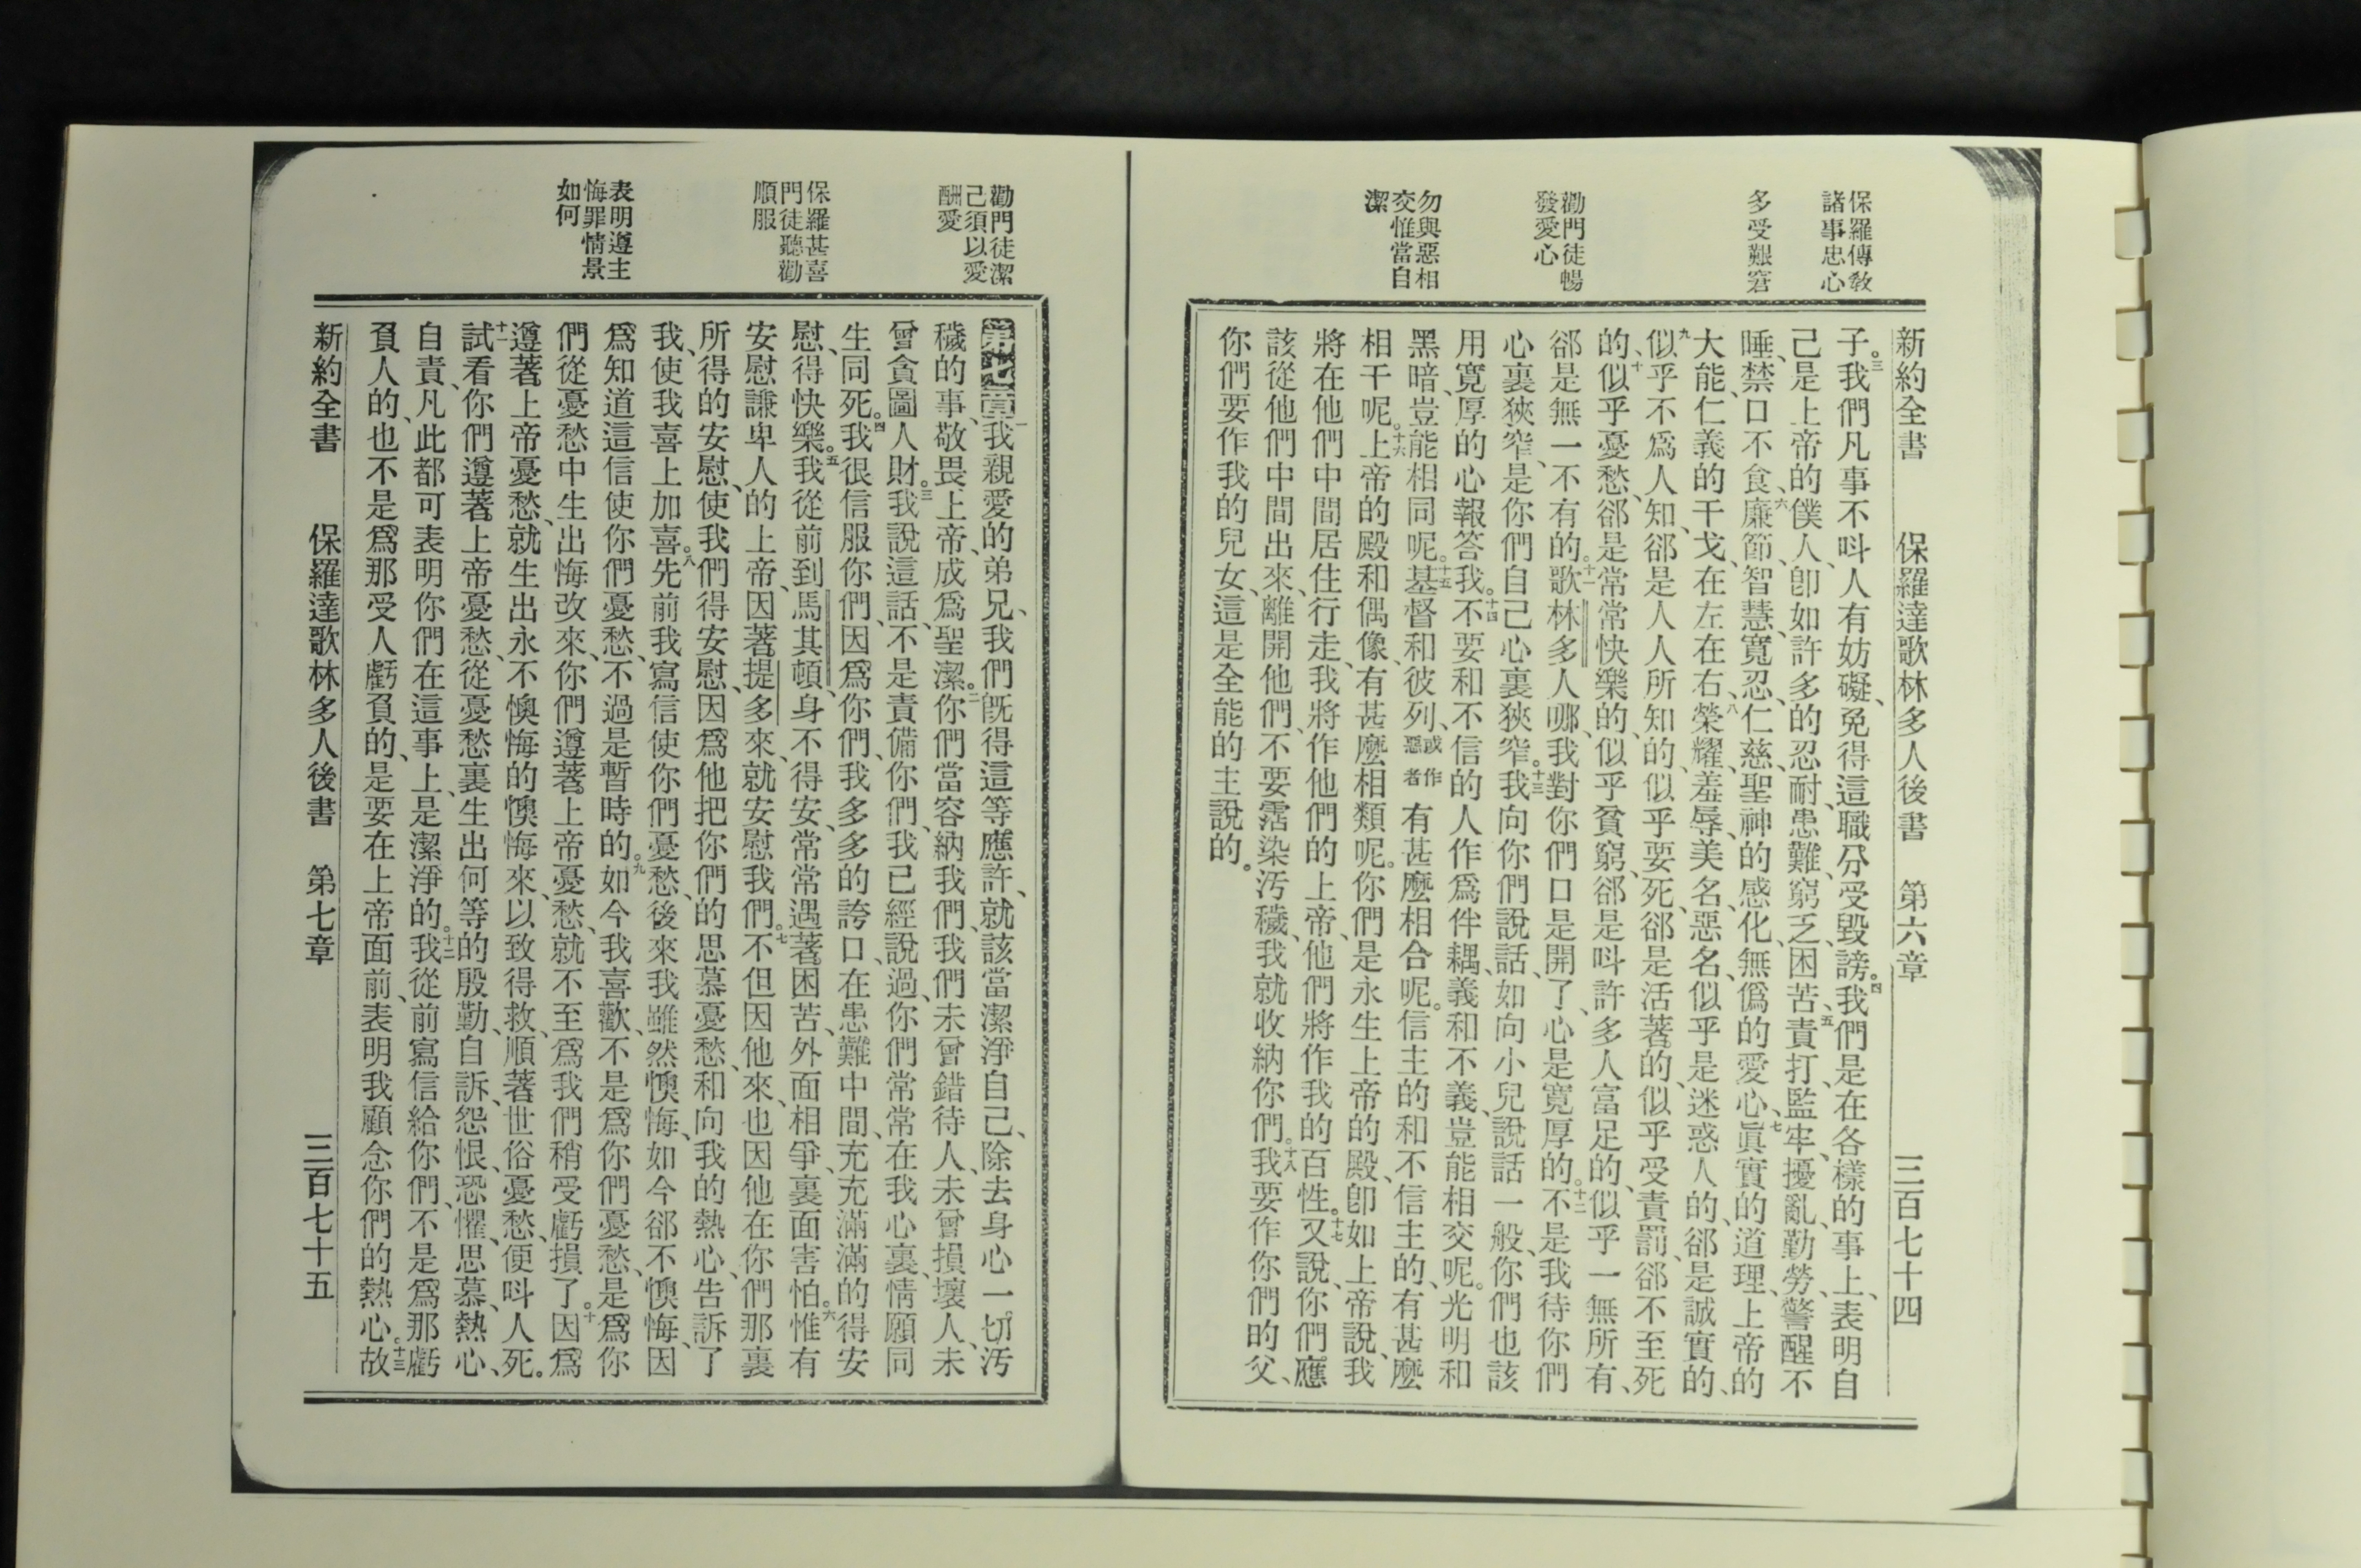 保羅傳教
諸事忠心
多受艱窘
勸門徒暢
發愛心
勿與惡相
交惟當自
潔
新約全書 保羅達歌林多人後書 第六章 三百七十四
子。三我們凡事不呌人有妨礙、免得這職分受毀謗。四我們是在各樣的事上、表明自
己是上帝的僕人、卽如許多的忍耐、患難、窮乏、困苦、五責打、監牢、擾亂、勤勞、警醒不
睡、禁口不食、六廉節、智慧、寬忍、仁慈、聖神的感化、無僞的愛心、七眞實的道理、上帝的
大能、仁義的干戈、在左在右、八榮耀、羞辱、美名、惡名、似乎是迷惑人的、郤是誠實的、
九似乎不爲人知、郤是人人所知的、似乎要死、郤是活著的、似乎受責罰、郤不至死
的、十似乎憂愁、郤是常常快樂的、似乎貧窮、郤是呌許多人富足的、似乎一無所有、
郤是無一不有的。十一歌林多人哪、我對你們口是開了、心是寬厚的。十二不是我待你們
心裏狹窄、是你們自己心裏狹窄。十三我向你們說話、如向小兒說話一般、你們也該
用寬厚的心報答我。十四不要和不信的人作爲伴耦、義和不義、豈能相交呢。光明和
黑暗、豈能相同呢。十五基督和彼列、或作惡者有甚麼相合呢。信主的和不信主的、有甚麼
相干呢。十六上帝的殿和偶像、有甚麼相類呢。你們是永生上帝的殿、卽如上帝說、我
將在他們中間居住行走、我將作他們的上帝、他們將作我的百性。十七又說、你們應
該從他們中間出來、離開他們、不要霑染汚穢、我就收納你們。十八我要作你們的父、
你們要作我的兒女、這是全能的主說的。
勸門徒潔
己須以愛
酬愛
保羅甚喜
門徒聽勸
順服
表明遵主
悔罪情景
如何
第七章一我親愛的弟兄、我們旣得這等應許、就該當潔淨自己、除去身心一切汚
穢的事、敬畏上帝、成爲聖潔。二你們當容納我們、我們未曾錯待人、未曾損壞人、未
曾貪圖人財。三我說這話、不是責備你們、我已經說過、你們常常在我心裏、情願同
生同死。四我很信服你們、因爲你們、我多多的誇口、在患難中間、充充滿滿的得安
慰、得快樂。五我從前到馬其頓、身不得安、常常遇著困苦、外面相爭、裏面害怕。六惟有
安慰謙卑人的上帝、因著提多來、就安慰我們。七不但因他來、也因他在你們那裏
所得的安慰、使我們得安慰、因爲他把你們的思慕憂愁、和向我的熱心、告訴了
我、使我喜上加喜。八先前我寫信使你們憂愁、後來我雖然懊悔、如今郤不懊悔、因
爲知道這信使你們憂愁、不過是暫時的。九如今我喜歡、不是爲你們憂愁、是爲你
們從憂愁中生出悔改來、你們遵著上帝憂愁、就不至爲我們稍受虧損了。十因爲
遵著上帝憂愁、就生出永不懊悔的懊悔來、以致得救、順著世俗憂愁、便呌人死。
十一試看你們遵著上帝憂愁、從憂愁裏生出何等的殷勤、自訴、怨恨、恐懼、思慕、熱心、
自責、凡此都可表明你們在這事上、是潔淨的。十二我從前寫信給你們、不是爲那虧
負人的、也不是爲那受人虧負的、是要在上帝面前、表明我顧念你們的熱心。十三故
新約全書 保羅達歌林多人後書 第七章 三百七十五